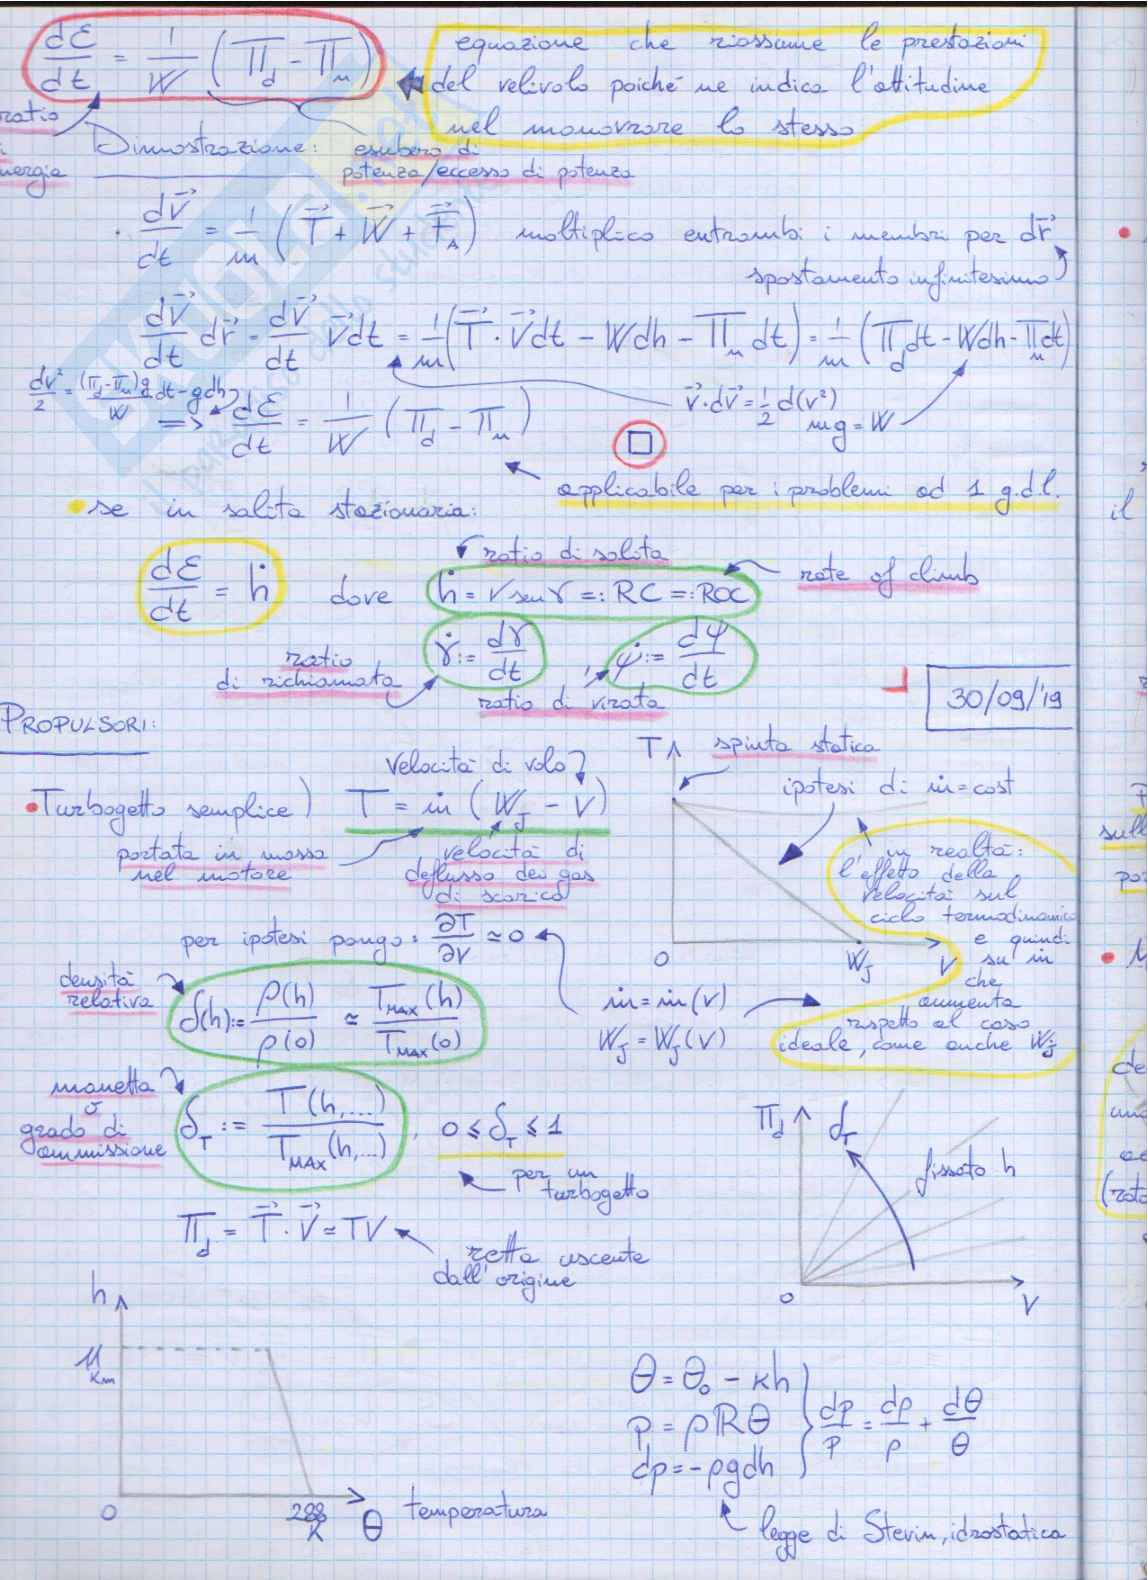 dℰ/dt = 1/W (Π_d - Π_n)
equazione che riassume le prestazioni
del velivolo poiché ne indica l'attitudine
nel manovrare lo stesso
ratio
energia
Dimostrazione:
esubero di
potenza/eccesso di potenza
· dv⃗/dt = 1/m (T⃗ + W⃗ + F⃗_A) moltiplico entrambi i membri per dr⃗
spostamento infinitesimo
dv⃗/dt dr⃗ = dv⃗/dt v⃗dt = 1/m (T⃗ · v⃗dt - Wdh - Π_n dt) = 1/m (Π_d dt - Wdh - Π_n dt)
dv²/2 = (Π_d - Π_n)g/W dt - gdh
v⃗ · dv⃗ = 1/2 d(v²)
mg = W
=> dℰ/dt = 1/W (Π_d - Π_n) □
applicabile per i problemi ad 1 g.d.l.
• se in salita stazionaria:
ratio di salita
rate of climb
dℰ/dt = ḣ dove ḣ = V senγ =: RC =: ROC
γ̇ := dγ/dt
ψ̇ := dψ/dt
ratio
di richiamata
ratio di virata
30/09/'19
PROPULSORI:
• Turbogetto semplice) T = ṁ (W_J - V)
velocità di volo
portata in massa
nel motore
velocità di
deflusso dei gas
di scarico
T
spinta statica
ipotesi di ṁ = cost
in realtà:
l'effetto della
velocità sul
ciclo termodinamico
e quindi
su ṁ
che
aumenta
rispetto al caso
ideale, come anche W_J
0
W_J
V
per ipotesi pongo: ∂T/∂V ≃ 0
ṁ = ṁ(v)
W_J = W_J(v)
densità
relativa
δ(h) := ρ(h)/ρ(0) ≃ T_MAX(h)/T_MAX(0)
manetta
o
grado di
ammissione
δ_T := T(h,...)/T_MAX(h,...), 0 ≤ δ_T ≤ 1
per un
turbogetto
Π_d = T⃗ · V⃗ ≃ TV
retta uscente
dall'origine
Π_d
δ_T
fissato h
0
V
h
11
Km
0
288
K
θ temperatura
θ = θ₀ - κh
p = ρℝθ
dp = -ρgdh
dp/p = dρ/ρ + dθ/θ
legge di Stevin, idrostatica
il